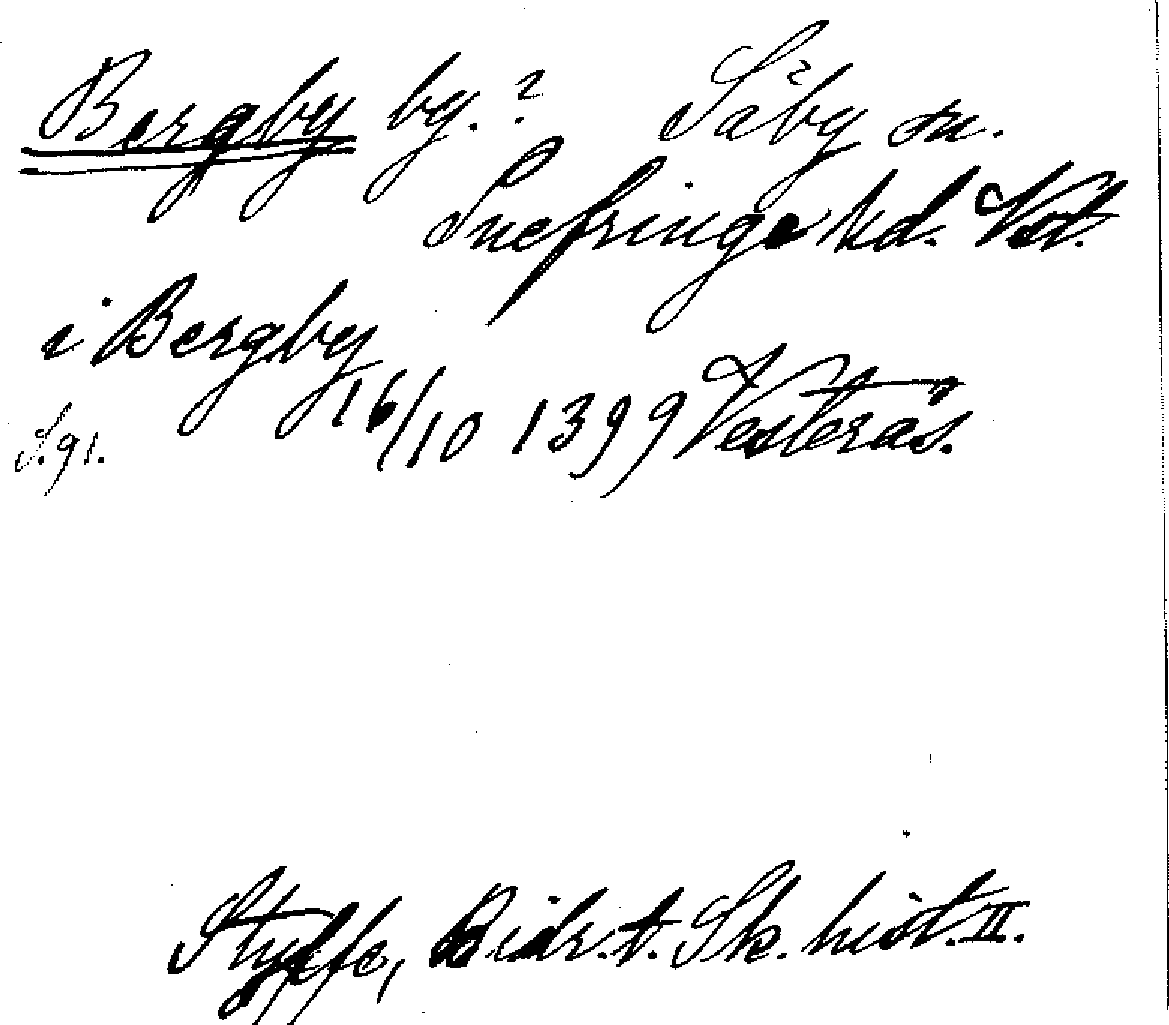 Bergby by.? Säby sn.
Snefringe hd. Vstl.
i Bergby
16/10 1399 Vesterås.
S. 91.
Styffe, Bidr. t. Sk. hist. II.